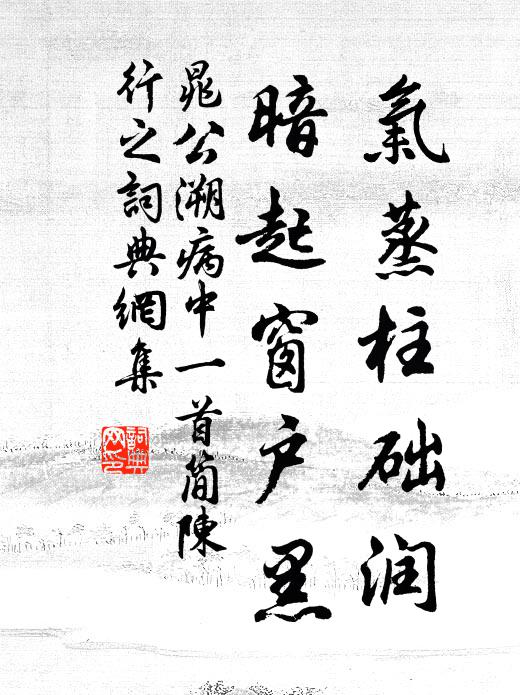 氣蒸柱础润
暗起窗户黑
晁公溯病中一首简陳
行之詞典網集
詞典網印